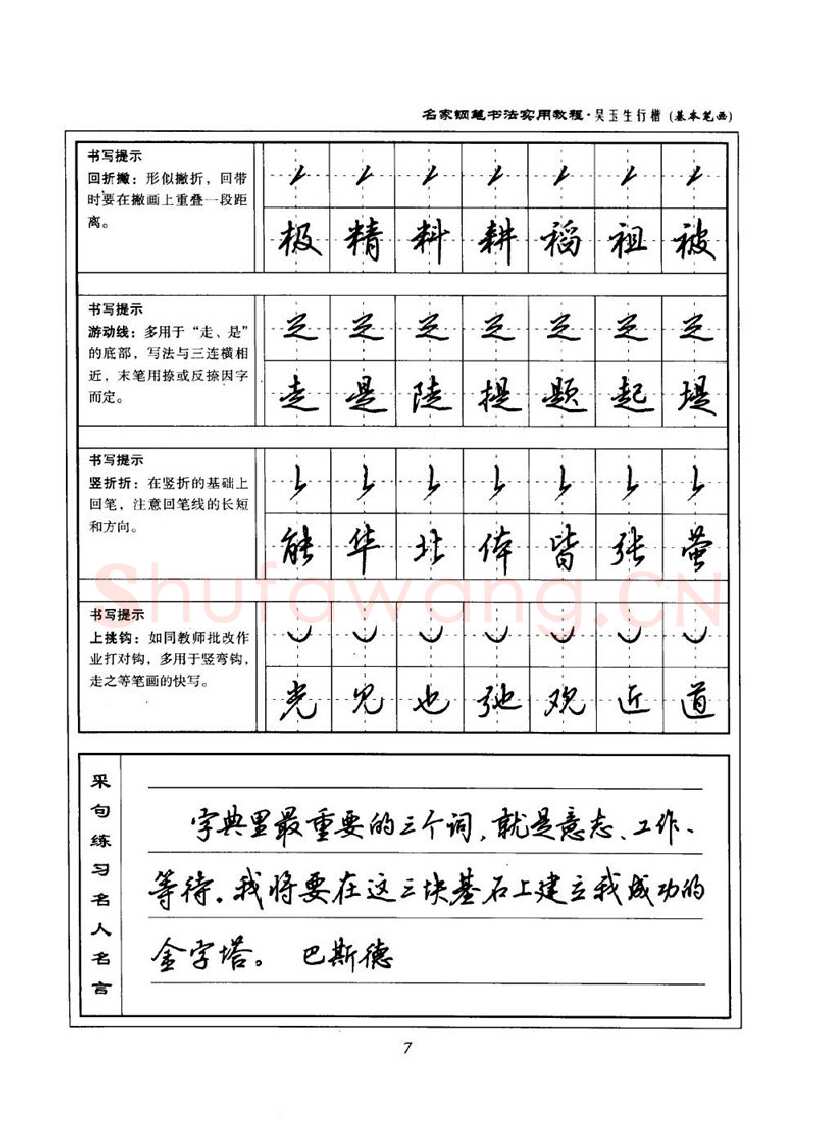 名家钢笔书法实用教程·吴玉生行楷(基本笔画)
书写提示
回折撇：形似撇折，回带
时要在撇画上重叠一段距
离。
极 精 料 耕 稻 祖 被
书写提示
游动线：多用于“走、是”
的底部，写法与三连横相
近，末笔用捺或反捺因字
而定。
走 是 陡 提 题 起 堤
书写提示
竖折折：在竖折的基础上
回笔，注意回笔线的长短
和方向。
能 华 北 体 皆 张 萤
书写提示
上挑钩：如同教师批改作
业打对钩，多用于竖弯钩，
走之等笔画的快写。
光 见 也 弛 观 近 道
采句练习名人名言
字典里最重要的三个词，就是意志、工作、
等待。我将要在这三块基石上建立我成功的
金字塔。 巴斯德
7
Shufawang.CN